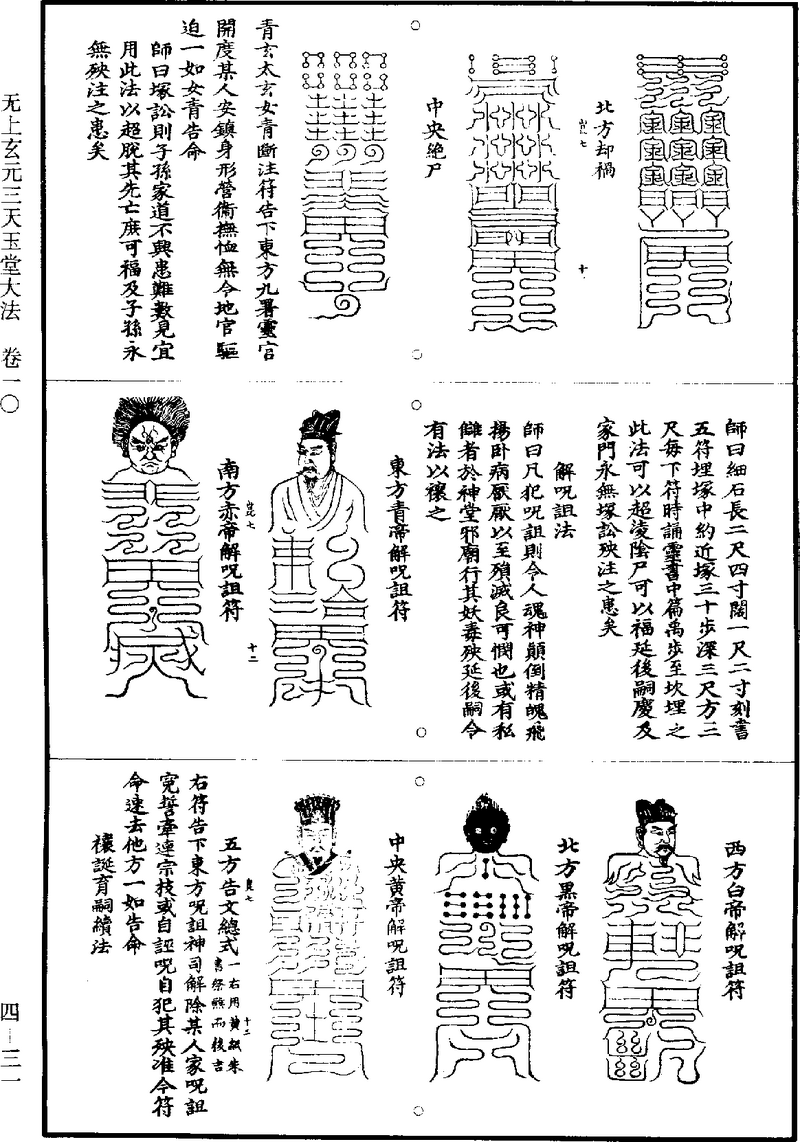 无上玄元三天玉堂大法　卷一〇
四—三一
北方却禍
崑七
十
中央絶尸
青玄太玄女青斷注符告下東方九署靈官
開度某人安鎮身形營衛撫恤無令地官驅
迫一如女青告命
師曰塚訟則子孫家道不興患難數見宜
用此法以超脫其先亡庶可福及子孫永
無殃注之患矣
師曰細石長二尺四寸闊一尺二寸刻書
五符埋塚中約近塚三十步深三尺方三
尺每下符時誦靈書中篇禹步至坎埋之
此法可以超淩陰尸可以福延後嗣慶及
家門永無塚訟殃注之患矣
解呪詛法
師曰凡犯呪詛則令人魂神顛倒精魄飛
揚卧病厭厭以至殞滅良可憫也或有私
讎者於神堂邪廟行其妖毒殃延後嗣今
有法以禳之
東方青帝解呪詛符
崑七
十二
南方赤帝解呪詛符
西方白帝解呪詛符
北方黑帝解呪詛符
中央黄帝解呪詛符
崑七
十二
五方告文總式一右用黄紙朱
書祭醮而後告
右符告下東方呪詛神司解除某人家呪詛
寃誓牽連宗技或自誣呪自犯其殃准令符
命速去他方一如告命
禳誕育嗣續法